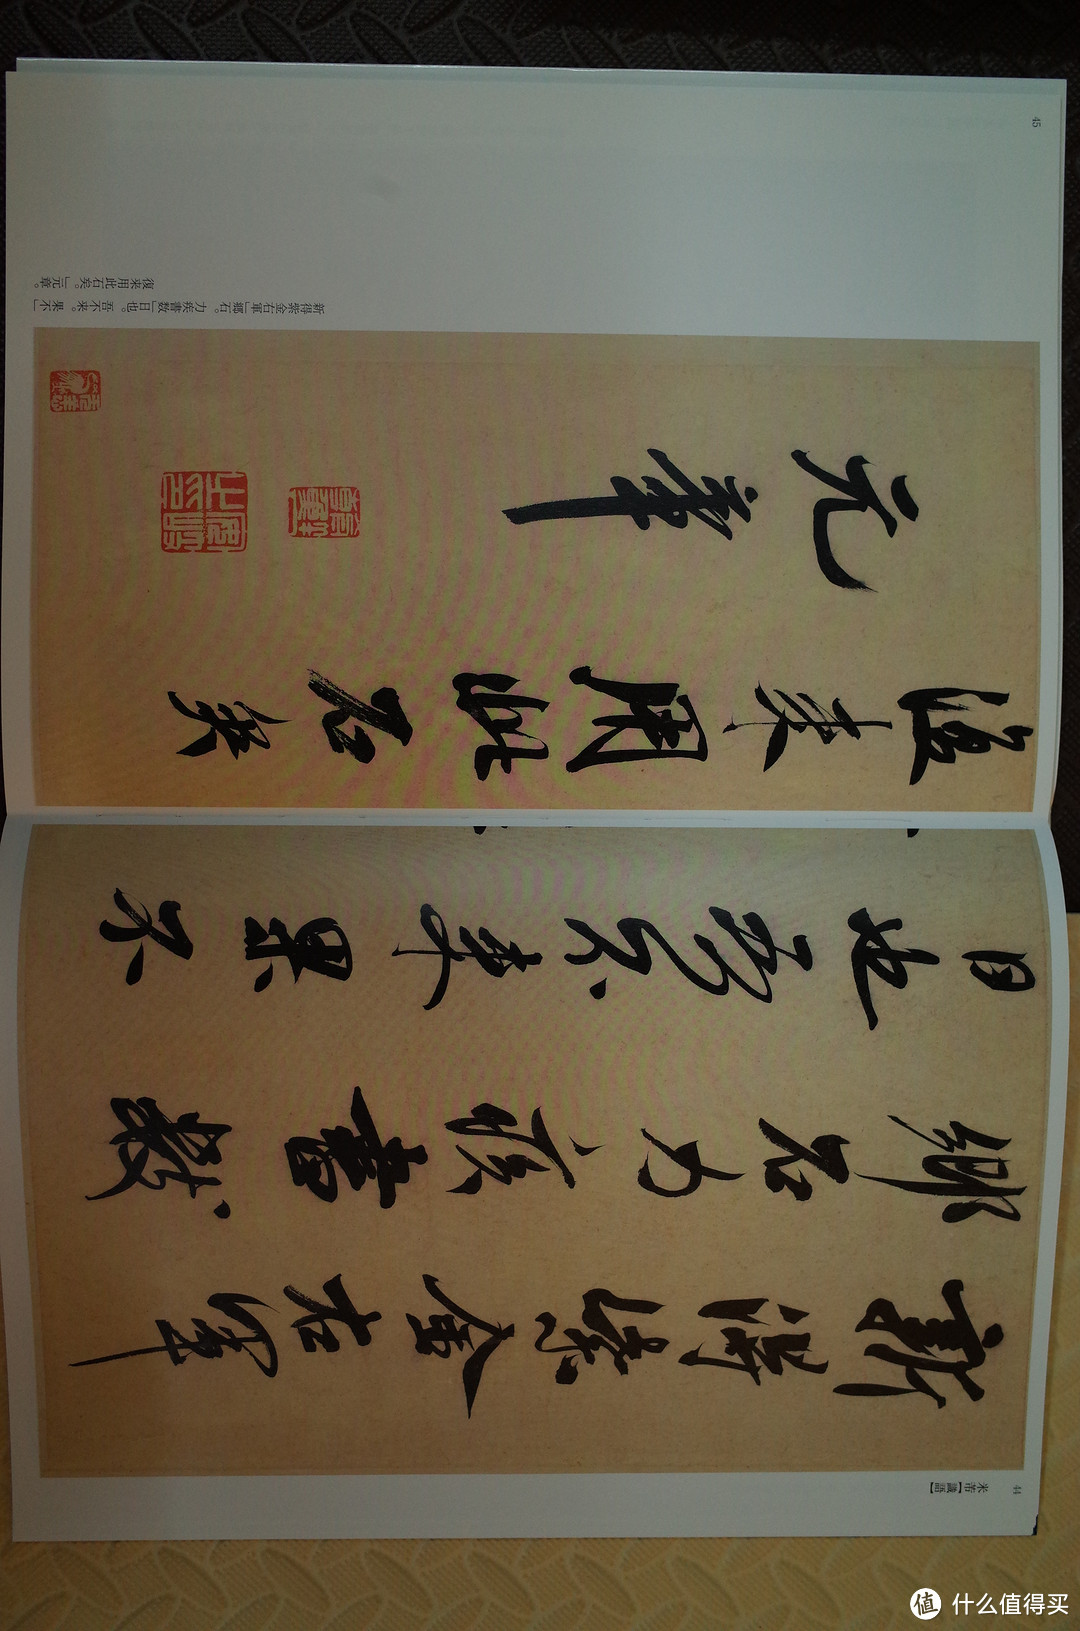 44
米芾【識語】
新得紫金右軍
鄉石力疾書數
日也吾不來果不
復來用此石矣
元章
新得紫金右軍」郷石。力疾書数」日也。吾不来。果不」
復来用此石矣。」元章。
45
值 什么值得买